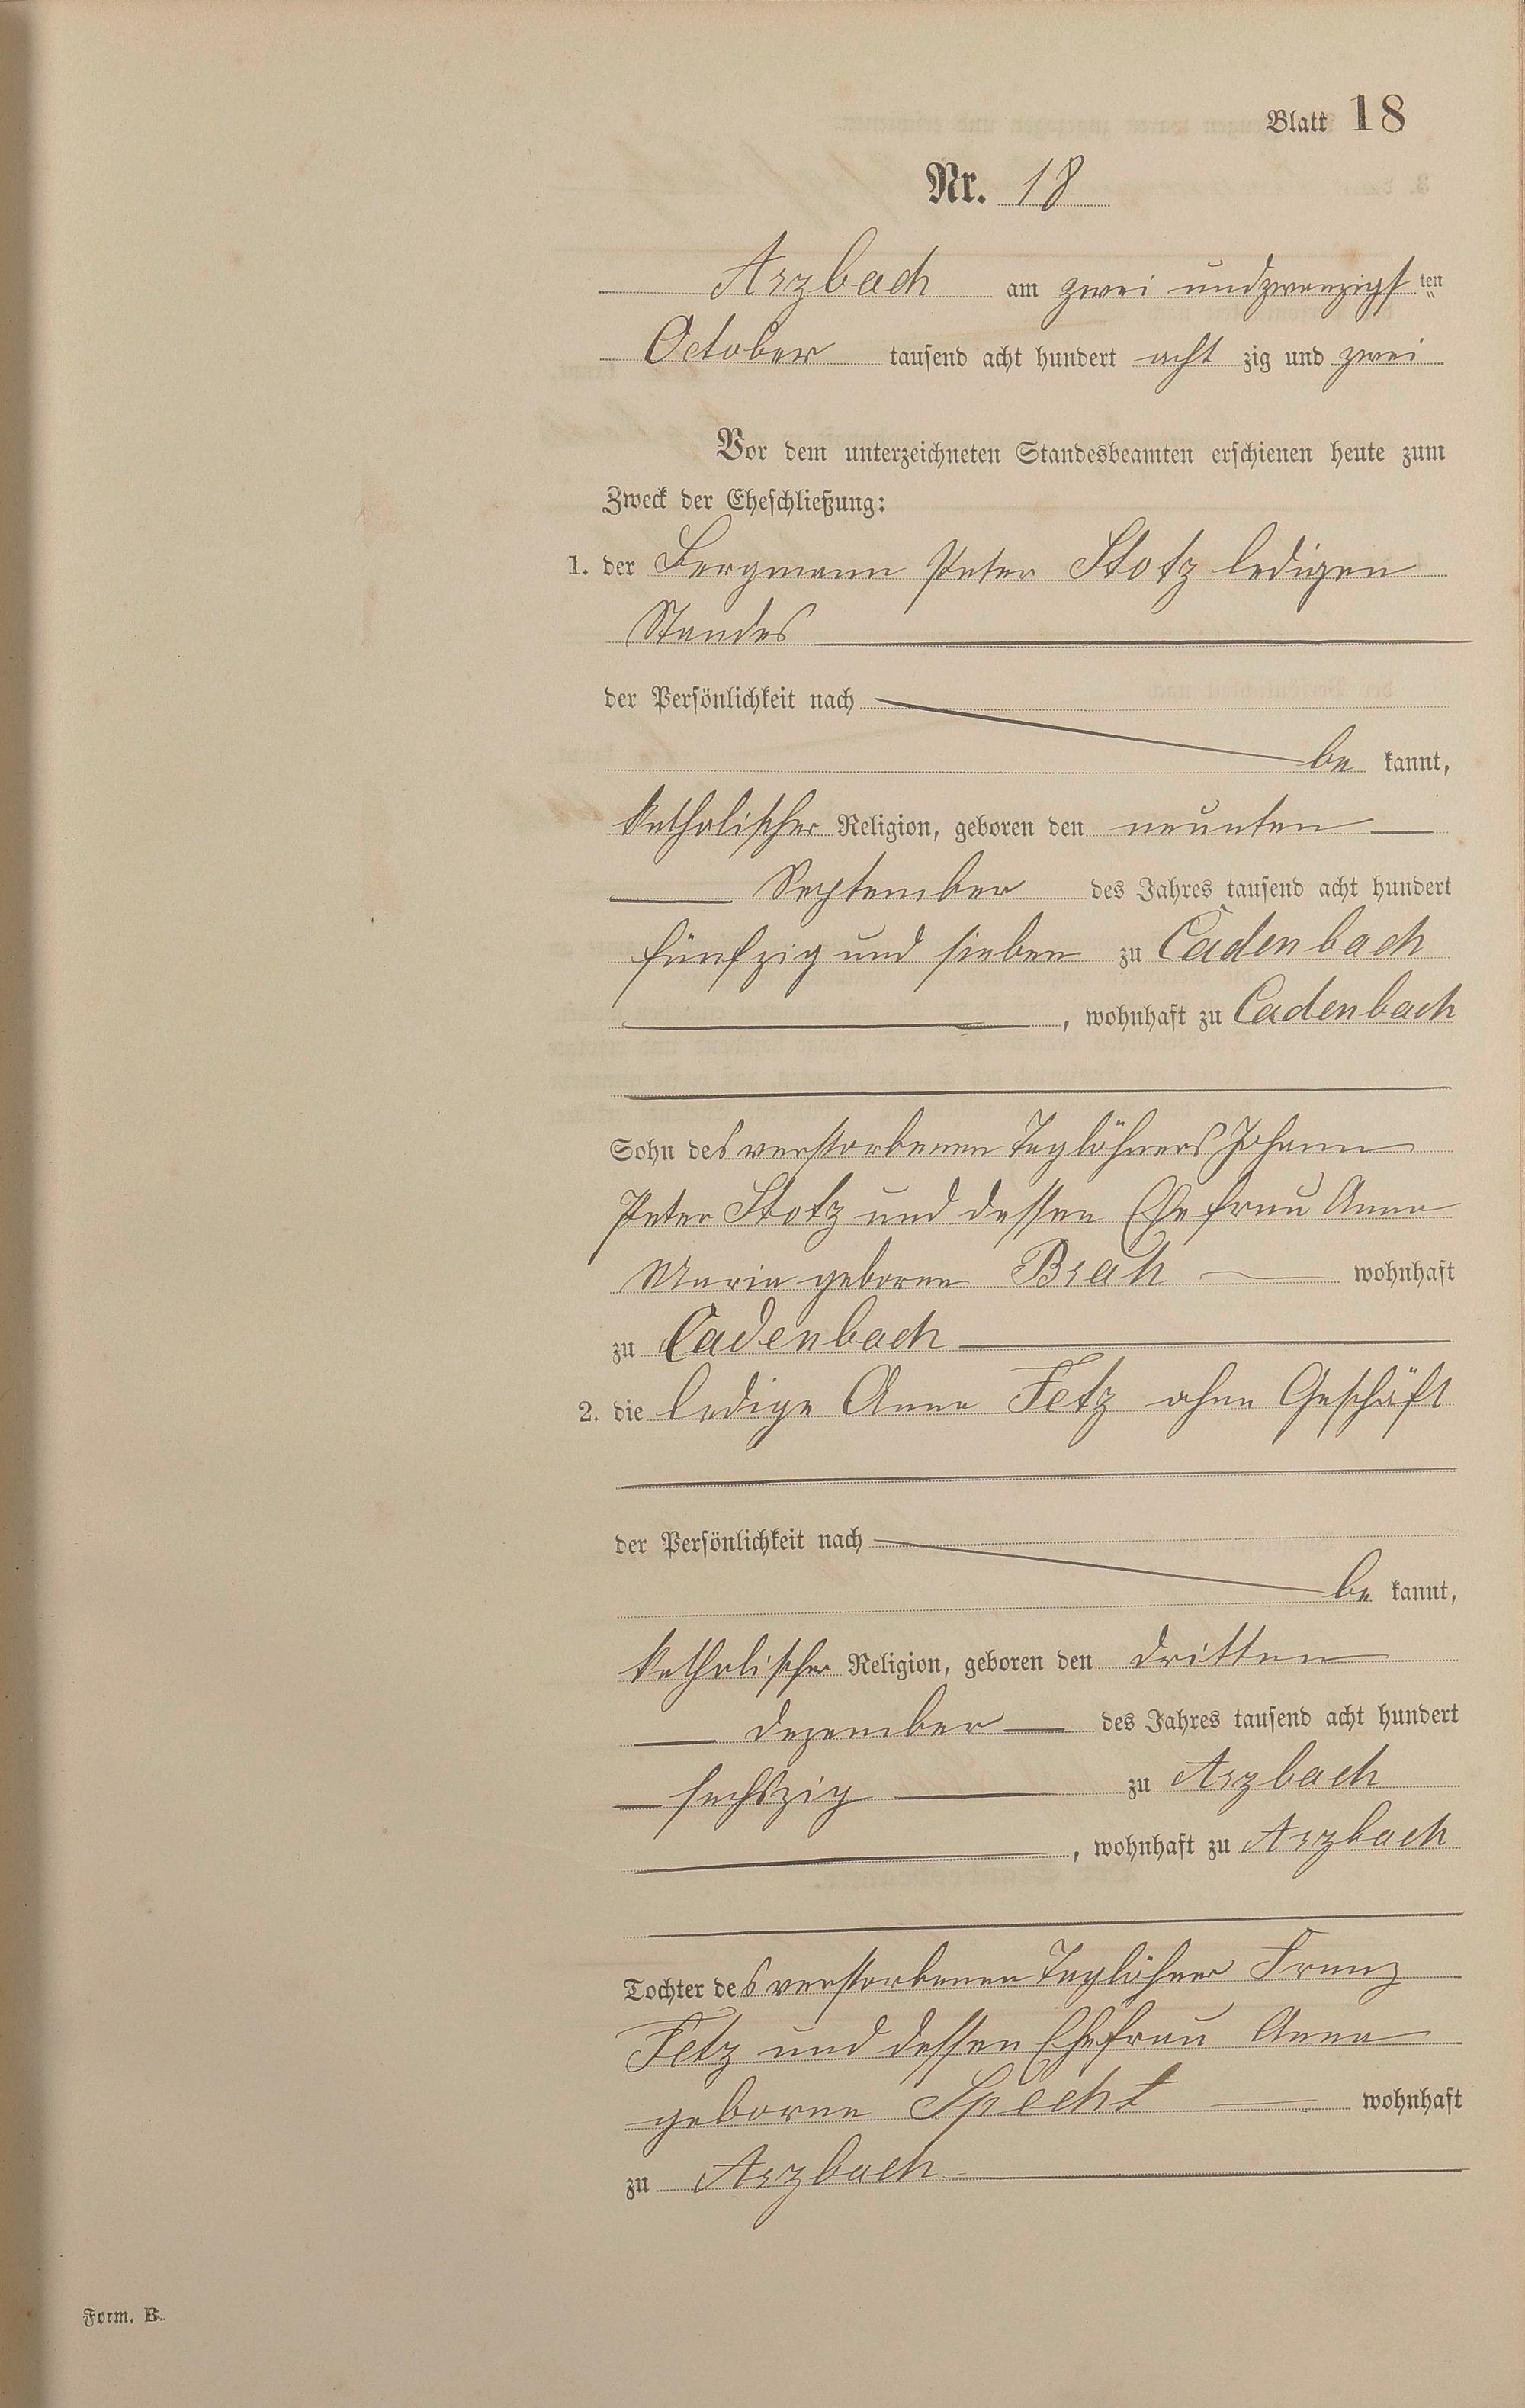 Blatt 18
Nr. 18
Arzbach am zwei undzwanzigsten
October tausend acht hundert acht zig und zwei
Vor dem unterzeichneten Standesbeamten erschienen heute zum
Zweck der Eheschließung:
1. der Bergmann Peter Stotz ledigen
Standes
der Persönlichkeit nach
be kannt,
katholischer Religion, geboren den neunten
September des Jahres tausend acht hundert
fünfzig und sieben zu Cadenbach
, wohnhaft zu Cadenbach
Sohn des verstorbenen Taglöhners Johann
Peter Stotz und dessen Ehefrau Anna
Maria geborne Brah wohnhaft
zu Cadenbach
2. die ledige Anna Fetz ohne Geschäft
der Persönlichkeit nach
be kannt,
katholischer Religion, geboren den dritten
Dezember des Jahres tausend acht hundert
sechszig zu Arzbach
, wohnhaft zu Arzbach
Tochter des verstorbenen Taglöhner Franz
Fetz und dessen Ehefrau Anna
geborne Specht wohnhaft
zu Arzbach
Form. B.